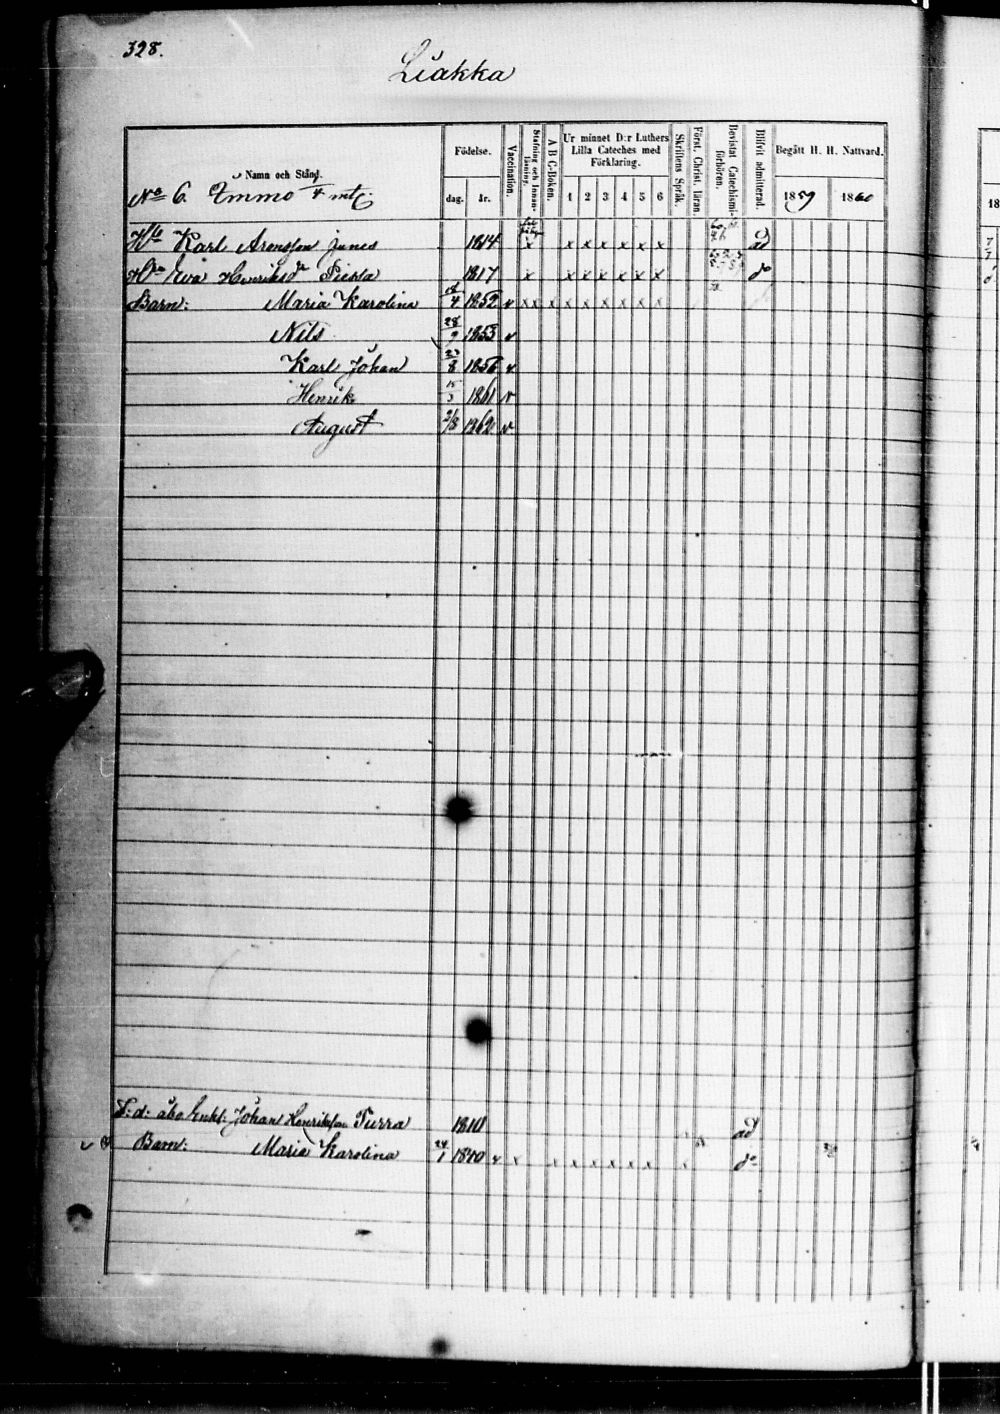 328.
Liakka
Namn och Stånd.
No 6. Immo 4 mtj.
Födelse.
dag. år.
Vaccination.
Stafning och Innan-läsning.
A B C-Boken.
Ur minnet D:r Luthers
Lilla Cateches med
Förklaring.
1 2 3 4 5 6
Skriftens Språk.
Först. Christ. läran.
Bevistat Catechismi-förhören.
Blifvit admitterad.
Begått H. H. Nattvard.
1859 1860
18
Karl Aronsson junes 1814 x x x x x x x ad
Eva Henriksdr Piekla 1817 x x x x x x x do
Barn: Maria Karolina 18/4 1852 v x x x x x x x x x
Nils 28/9 1853 v
Karl Johan 23/8 1856 v
Henrik 15/3 1861 v
August 2/8 1862 v
Johan Henriksson Purra 1810 ad
Barn: Maria Karolina 24/1 1840 v x x x x x x x x do